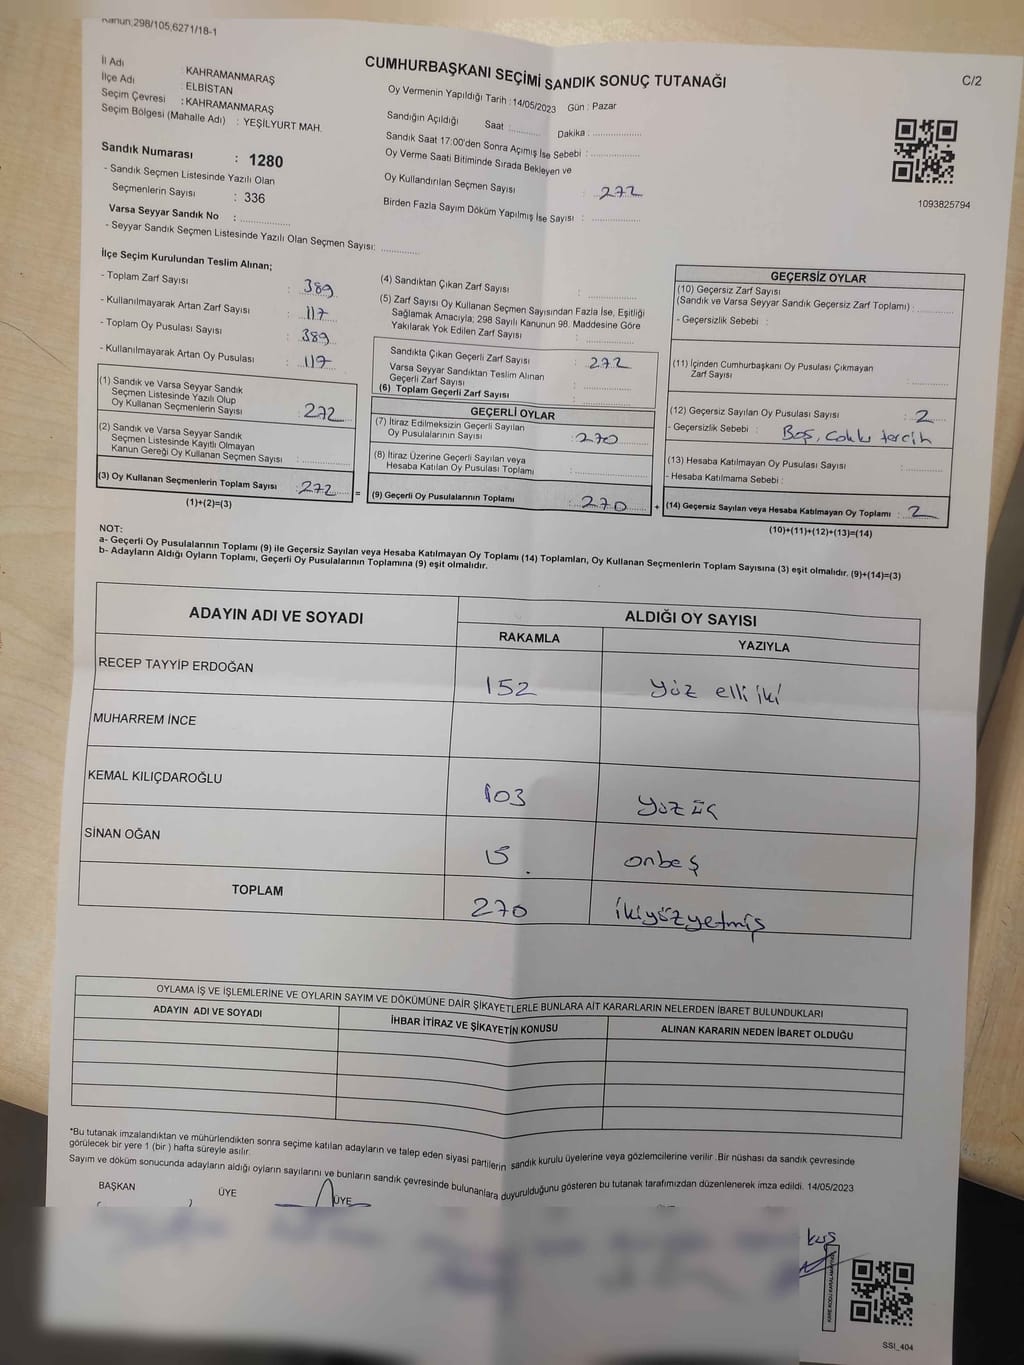 Kanun,298/105,6271/18-1
CUMHURBAŞKANI SEÇİMİ SANDIK SONUÇ TUTANAĞI
C/2
İl Adı : KAHRAMANMARAŞ
İlçe Adı : ELBİSTAN
Seçim Çevresi : KAHRAMANMARAŞ
Seçim Bölgesi (Mahalle Adı) : YEŞİLYURT MAH.
Sandık Numarası : 1280
- Sandık Seçmen Listesinde Yazılı Olan
Seçmenlerin Sayısı : 336
Varsa Seyyar Sandık No :
- Seyyar Sandık Seçmen Listesinde Yazılı Olan Seçmen Sayısı:
Oy Vermenin Yapıldığı Tarih : 14/05/2023 Gün : Pazar
Sandığın Açıldığı Saat : Dakika :
Sandık Saat 17:00'den Sonra Açımış İse Sebebi :
Oy Verme Saati Bitiminde Sırada Bekleyen ve
Oy Kullandırılan Seçmen Sayısı : 272
Birden Fazla Sayım Döküm Yapılmış İse Sayısı :
1093825794
İlçe Seçim Kurulundan Teslim Alınan;
- Toplam Zarf Sayısı : 389
- Kullanılmayarak Artan Zarf Sayısı : 117
- Toplam Oy Pusulası Sayısı : 389
- Kullanılmayarak Artan Oy Pusulası : 117
(1) Sandık ve Varsa Seyyar Sandık
Seçmen Listesinde Yazılı Olup
Oy Kullanan Seçmenlerin Sayısı : 272
(2) Sandık ve Varsa Seyyar Sandık
Seçmen Listesinde Kayıtlı Olmayan
Kanun Gereği Oy Kullanan Seçmen Sayısı :
(3) Oy Kullanan Seçmenlerin Toplam Sayısı : 272
(1)+(2)=(3)
(4) Sandıktan Çıkan Zarf Sayısı :
(5) Zarf Sayısı Oy Kullanan Seçmen Sayısından Fazla İse, Eşitliği
Sağlamak Amacıyla; 298 Sayılı Kanunun 98. Maddesine Göre
Yakılarak Yok Edilen Zarf Sayısı :
Sandıkta Çıkan Geçerli Zarf Sayısı : 272
Varsa Seyyar Sandıktan Teslim Alınan
Geçerli Zarf Sayısı :
(6) Toplam Geçerli Zarf Sayısı :
GEÇERLİ OYLAR
(7) İtiraz Edilmeksizin Geçerli Sayılan
Oy Pusulalarının Sayısı : 270
(8) İtiraz Üzerine Geçerli Sayılan veya
Hesaba Katılan Oy Pusulası Toplamı :
= (9) Geçerli Oy Pusulalarının Toplamı : 270
GEÇERSİZ OYLAR
(10) Geçersiz Zarf Sayısı
(Sandık ve Varsa Seyyar Sandık Geçersiz Zarf Toplamı) :
- Geçersizlik Sebebi :
(11) İçinden Cumhurbaşkanı Oy Pusulası Çıkmayan
Zarf Sayısı :
(12) Geçersiz Sayılan Oy Pusulası Sayısı : 2
- Geçersizlik Sebebi : Boş, Çoklu tercih
(13) Hesaba Katılmayan Oy Pusulası Sayısı :
- Hesaba Katılmama Sebebi :
+ (14) Geçersiz Sayılan veya Hesaba Katılmayan Oy Toplamı : 2
(10)+(11)+(12)+(13)=(14)
NOT:
a- Geçerli Oy Pusulalarının Toplamı (9) ile Geçersiz Sayılan veya Hesaba Katılmayan Oy Toplamı (14) Toplamları, Oy Kullanan Seçmenlerin Toplam Sayısına (3) eşit olmalıdır. (9)+(14)=(3)
b- Adayların Aldığı Oyların Toplamı, Geçerli Oy Pusulalarının Toplamına (9) eşit olmalıdır.
ADAYIN ADI VE SOYADI ALDIĞI OY SAYISI
RAKAMLA YAZIYLA
RECEP TAYYİP ERDOĞAN 152 yüz elli iki
MUHARREM İNCE
KEMAL KILIÇDAROĞLU 103 yüz üç
SİNAN OĞAN 15 onbeş
TOPLAM 270 ikiyüzyetmiş
OYLAMA İŞ VE İŞLEMLERİNE VE OYLARIN SAYIM VE DÖKÜMÜNE DAİR ŞİKAYETLERLE BUNLARA AİT KARARLARIN NELERDEN İBARET BULUNDUKLARI
ADAYIN ADI VE SOYADI İHBAR İTİRAZ VE ŞİKAYETİN KONUSU ALINAN KARARIN NEDEN İBARET OLDUĞU
*Bu tutanak imzalandıktan ve mühürlendikten sonra seçime katılan adayların ve talep eden siyasi partilerin sandık kurulu üyelerine veya gözlemcilerine verilir .Bir nüshası da sandık çevresinde
görülecek bir yere 1 (bir ) hafta süreyle asılır.
Sayım ve döküm sonucunda adayların aldığı oyların sayılarını ve bunların sandık çevresinde bulunanlara duyurulduğunu gösteren bu tutanak tarafımızdan düzenlenerek imza edildi. 14/05/2023
BAŞKAN ÜYE ÜYE
kuş
SSI_404